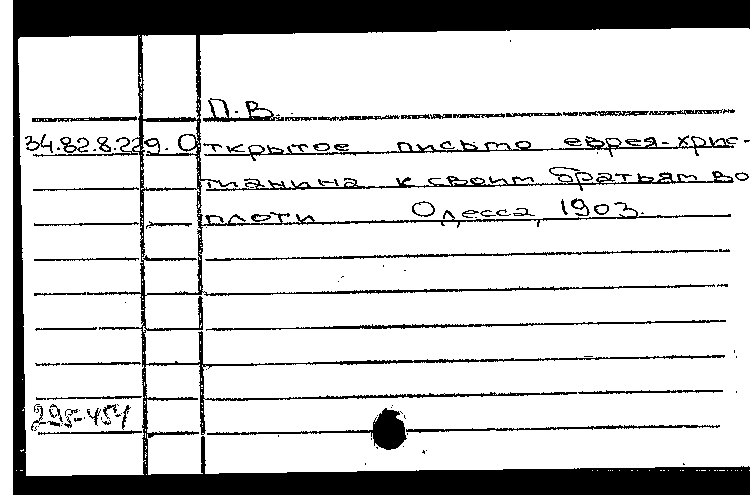 П.В.
34.82.8.229. Открытое письмо еврея-хрис-
тианина к своим братьям во
плоти Одесса, 1903.
295-454